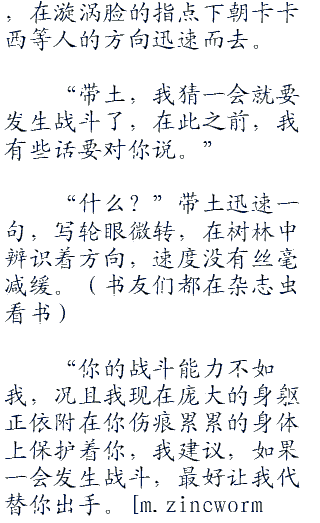 ，在漩涡脸的指点下朝卡卡
西等人的方向迅速而去。
“带土，我猜一会就要
发生战斗了，在此之前，我
有些话要对你说。”
“什么？”带土迅速一
句，写轮眼微转，在树林中
辨识着方向，速度没有丝毫
减缓。（书友们都在杂志虫
看书）
“你的战斗能力不如
我，况且我现在庞大的身躯
正依附在你伤痕累累的身体
上保护着你，我建议，如果
一会发生战斗，最好让我代
替你出手。[m.zineworm